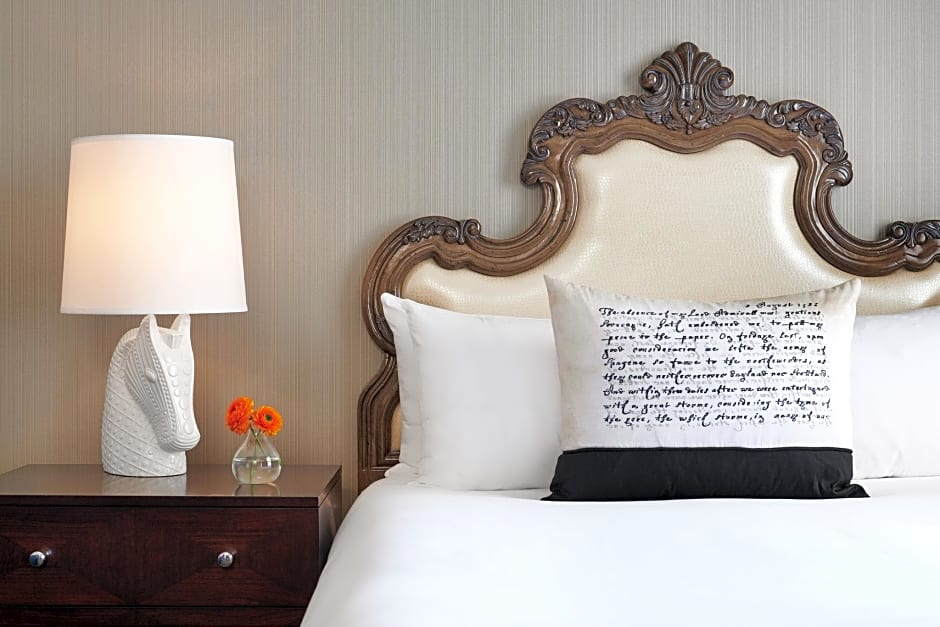 8 August 1588
The absence of my lord Admirall most gentious
Soveragne, hath emboldened me to put my
penn to the paper. On fridaye last, upon
good consideration we lefte the army of
Spagne so farre to the northewordes, as
they could neither recover England nor Scottland.
And within three daies after we were entertayned
with a great storme, considering the tyme of
the yere, the which storme, in many of our